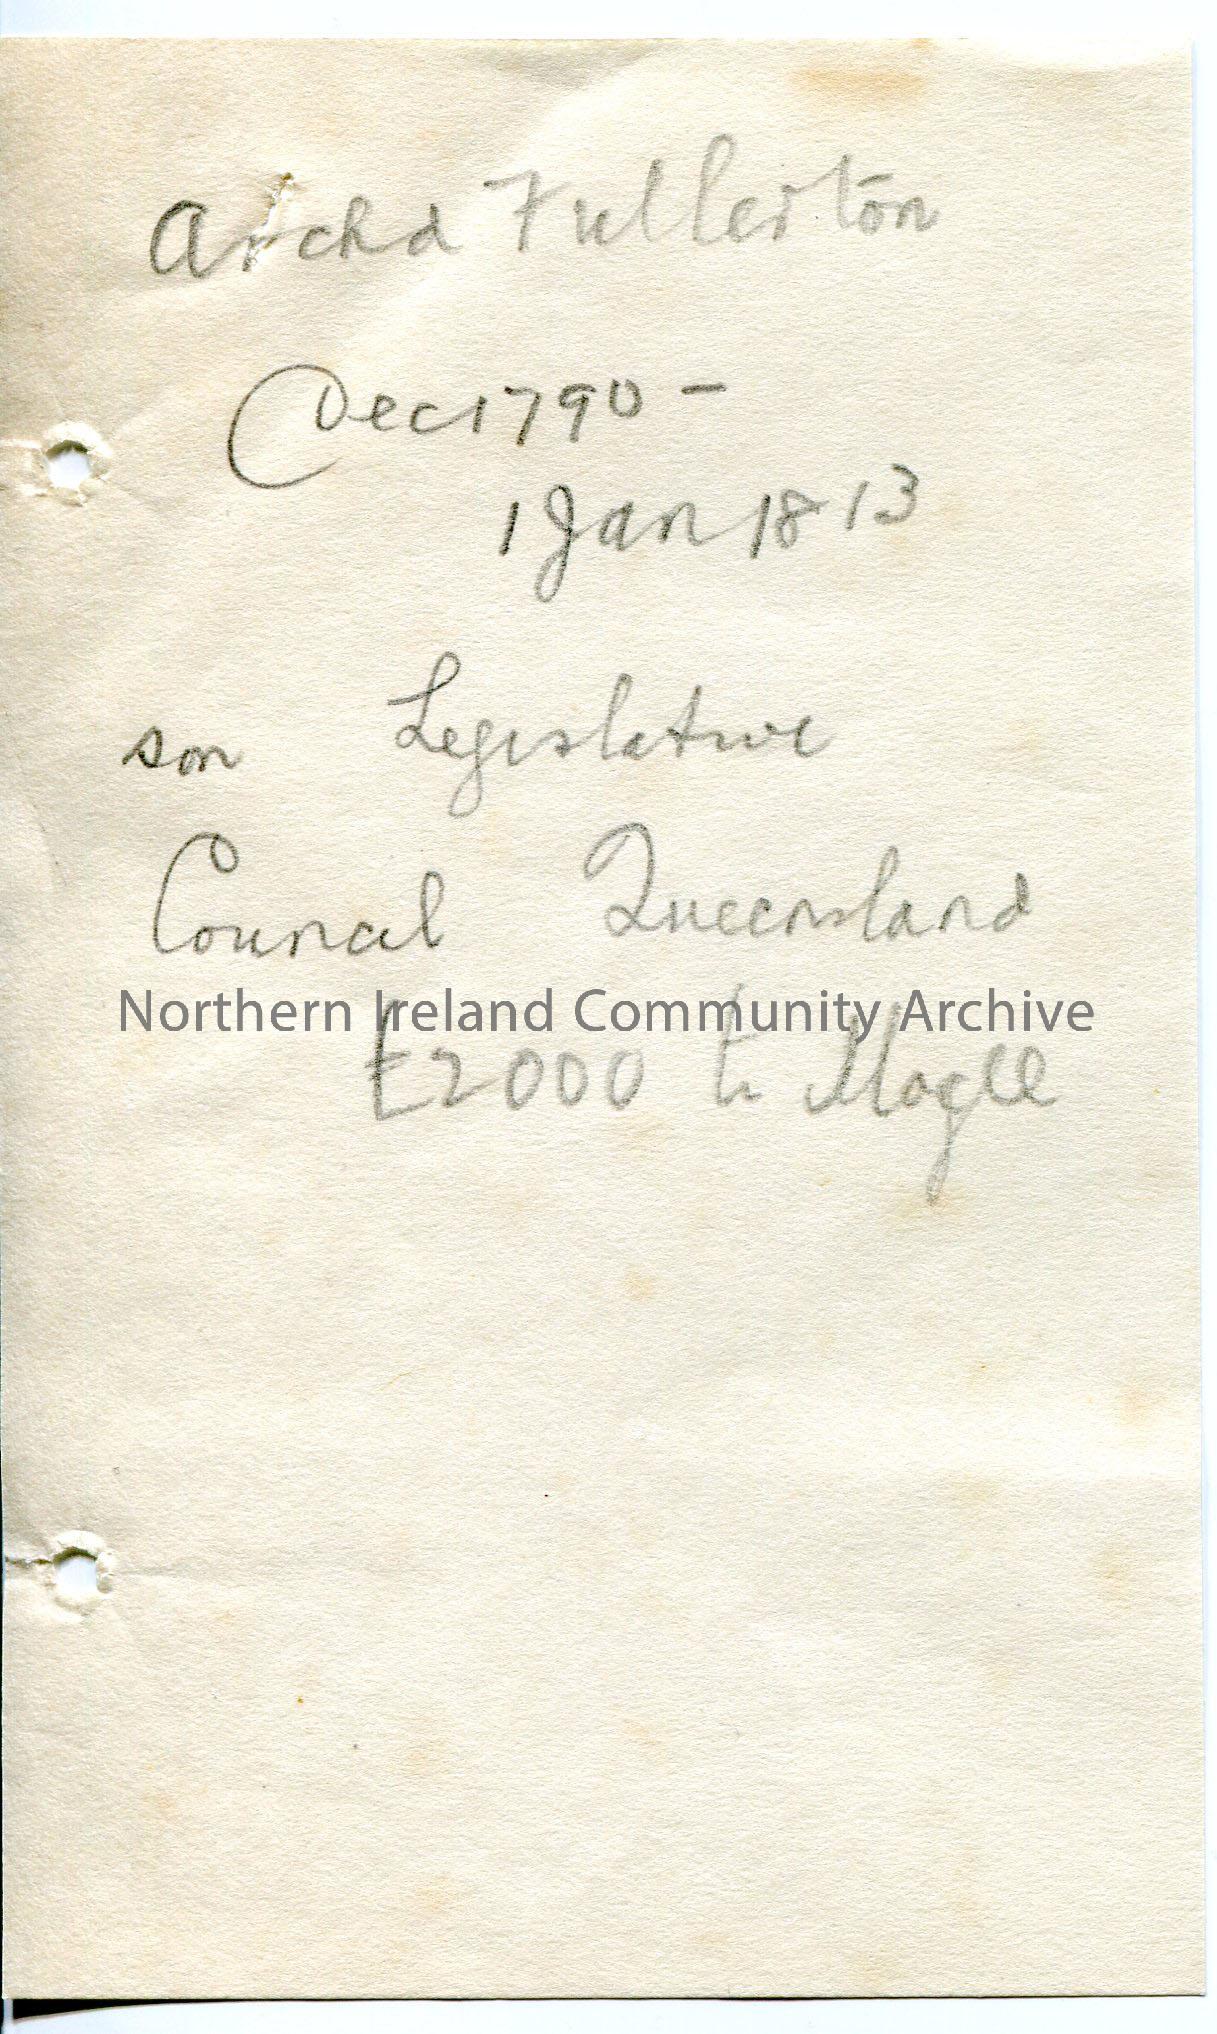 Archd Fullerton
Dec 1790 -
1 Jan 1813
son Legislative
Council Queensland
Northern Ireland Community Archive
£2000 to Magee